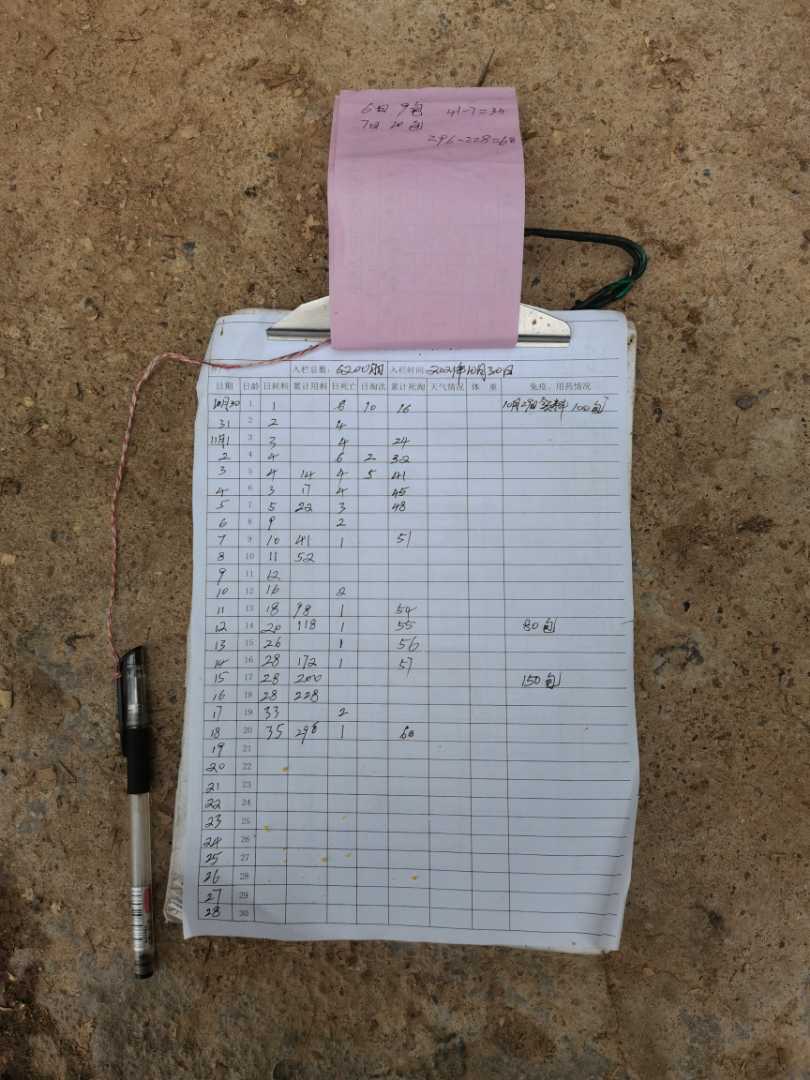 6日 9包 41-7=34
7日 10包
296-228=68
入栏总数: 6200 入栏时间: 2021年10月30日
日期 日龄 日耗料 累计用料 日死亡 日淘汰 累计死淘 天气情况 体 重 免疫、用药情况
10月30 1 1 6 10 16 10月29日 100包
31 2 2 4
11月1 3 3 4 24
2 4 4 6 2 32
3 5 4 14 4 5 41
4 6 3 17 4 45
5 7 5 22 3 48
6 8 9 2
7 9 10 41 1 51
8 10 11 52
9 11 12
10 12 16 2
11 13 18 98 1 54
12 14 20 118 1 55 80包
13 15 26 1 56
14 16 28 172 1 57
15 17 28 200 150包
16 18 28 228
17 19 33 2
18 20 35 296 1 60
19 21
20 22
21 23
22 24
23 25
24 26
25 27
26 28
27 29
28 30